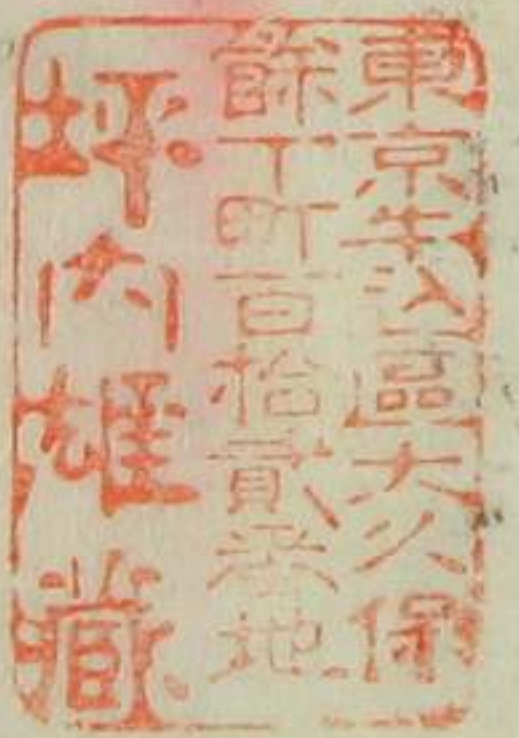 東京牛込區大久保
餘丁町百拾貳番地
坪内雄藏